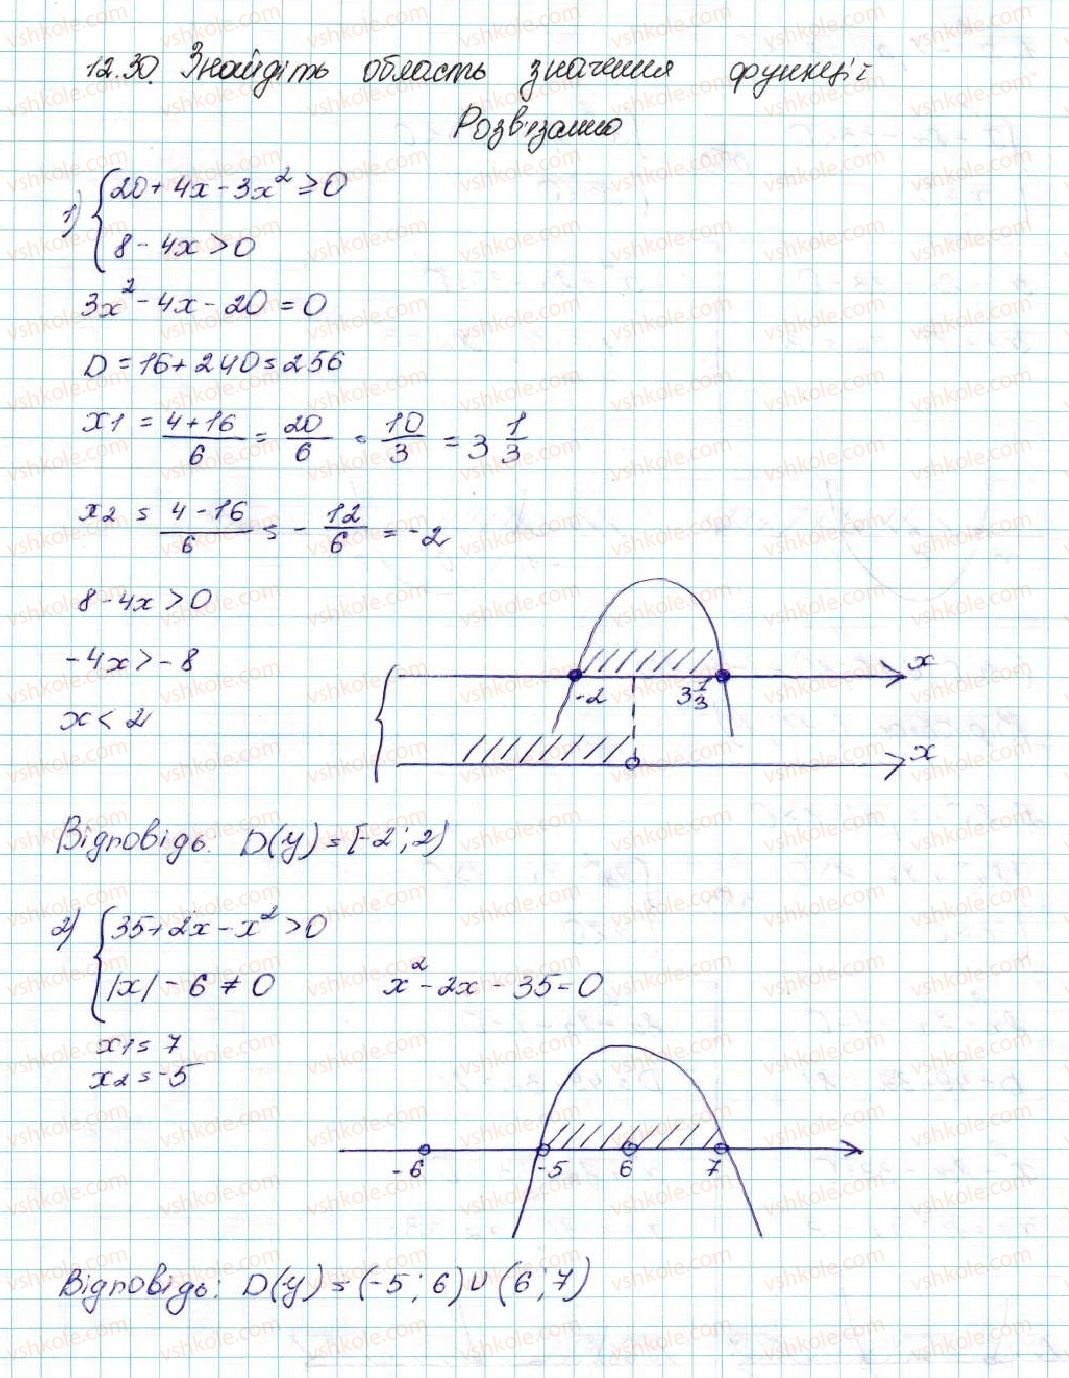 12.30. Знайдіть область значення функції
Розв'язання
1) {20+4x-3x²≥0
8-4x>0
3x²-4x-20=0
D=16+240=256
x1 = 4+16/6 = 20/6 = 10/3 = 3 1/3
x2 = 4-16/6 = - 12/6 = -2
8-4x>0
-4x>-8
x<2
x
-2 3 1/3
x
Відповідь: D(y)=[-2;2)
2) {35+2x-x²>0
|x|-6≠0 x²-2x-35=0
x1=7
x2=-5
-6 -5 6 7
Відповідь: D(y)=(-5;6)∪(6;7)
vshkole.com